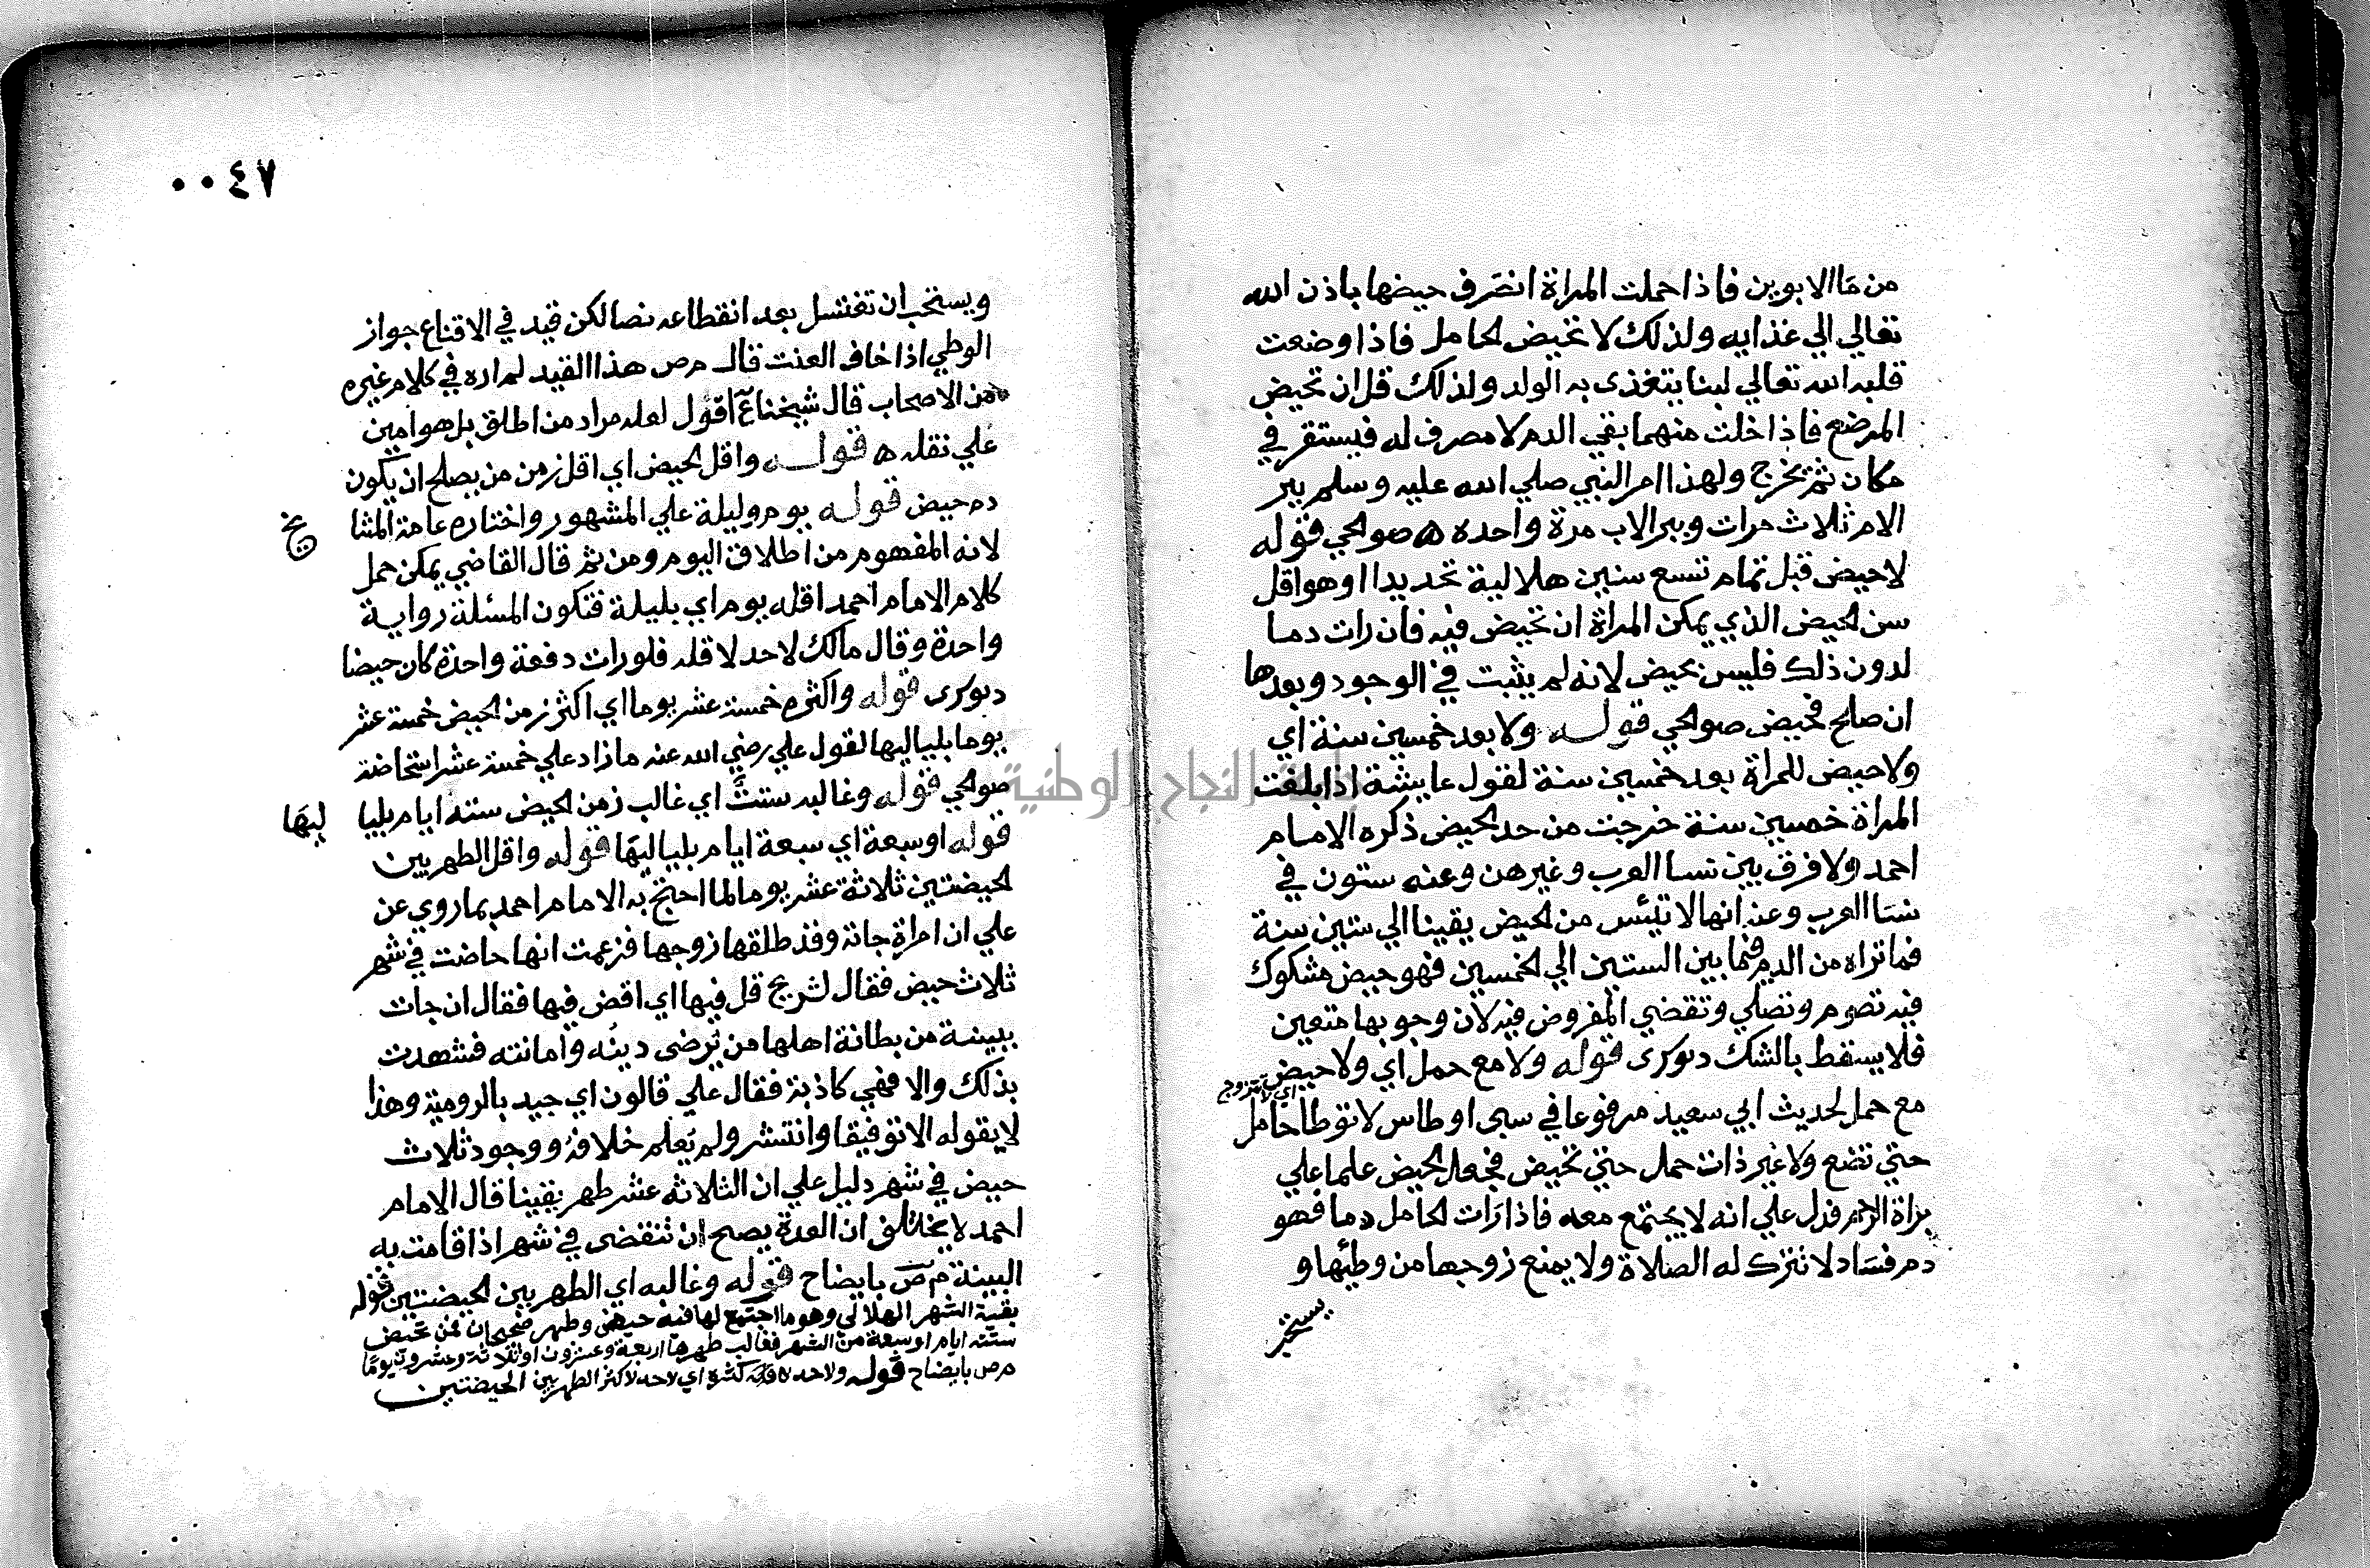 من ما الابوين فاذا حملت المراة انصرف حيضها باذن الله
تعالي الي غذايه ولذلك لا تحيض الحامل فاذا وضعت
قلبه الله تعالي لبنا يتغذى به الولد ولذلك قل ان تحيض
المرضع فاذا خلت منهما بقي الدم لا مصرف له فيستقر في
مكان ثم يخرج ولهذا امر النبي صلي الله عليه وسلم ببر
الام ثلاث مرات وببر الاب مرة واحده ه صوالحي قوله
لا حيض قبل تمام تسع سنين هلالية تحديدا اوهو اقل
سن الحيض الذي يمكن المراة ان تحيض فيه فان رات دما
لدون ذلك فليس بحيض لانه لم يثبت في الوجود وبعدها
ان صلح فحيض صوالحي قوله ولا بعد خمسين سنة اي
ولا حيض للمراة بعد خمسين سنة لقول عايشة اذا بلغت
المراة خمسين سنة خرجت من حد الحيض ذكره الامام
احمد ولا فرق بين نسا العرب وغيرهن وعنه ستون في
نسا العرب وعنه انها لا تيئس من الحيض يقينا الي ستين سنة
فما تراه من الدم فيما بين الستين الي الخمسين فهو حيض مشكوك
فيه تصوم وتصلي وتقضي المفروض فيه لان وجوبها متعين
فلا يسقط بالشك دنوكرى قوله ولا مع حمل اي ولا حيض
اي لا تتزوج
مع حمل لحديث ابي سعيد مرفوعا في سبى اوطاس لا توطا حامل
حتي تضع ولا غير ذات حمل حتي تحيض فجعل الحيض علما علي
براة الرحم فدل علي انه لا يجتمع معه فاذا رات الحامل دما فهو
دم فساد لا تترك له الصلاة ولا يمنع زوجها من وطئها و
يستحب
٠٠٤٧
ويستحب ان تغتسل بعد انقطاعه نصا لكن قيد في الاقناع جواز
الوطي اذا خاف العنت قال م ص هذا القيد لم اره في كلام غيره
من الاصحاب قال شيخنا ع اقول لعله مراد من اطلق بل هو امين
علي نقله ه قوله واقل الحيض اي اقل زمن من يصلح ان يكون
دم حيض قوله يوم وليلة علي المشهور واختاره عامة المشا
يخ
لانه المفهوم من اطلاق اليوم ومن ثم قال القاضي يمكن حمل
كلام الامام احمد اقله يوم اي بليلة فتكون المسئلة رواية
واحدة وقال مالك لا حد لاقله فلو رات دفعة واحدة كان حيضا
دنوكرى قوله واكثره خمسة عشر يوما اي اكثر زمن الحيض خمسة عشر
يوما بلياليها لقول علي رضي الله عنه ما زاد علي خمسة عشر استحاضة
صوالحي قوله وغالبه ست اي غالب زمن الحيض ستة ايام بليا
ليها
قوله او سبعة اي سبعة ايام بلياليها قوله واقل الطهر بين
الحيضتين ثلاثة عشر يوما لما احتج به الامام احمد بما روي عن
علي ان امراة جاته وقد طلقها زوجها فزعمت انها حاضت في شهر
ثلاث حيض فقال لشريح قل فيها اي اقض فيها فقال ان جات
ببينة من بطانة اهلها من يرضى دينه وامانته فشهدت
بذلك والا فهي كاذبة فقال علي قالون اي جيد بالرومية وهذا
لا يقوله الا توفيقا وانتشر ولم يعلم خلافه ووجود ثلاث
حيض في شهر دليل علي ان الثلاثة عشر طهر يقينا قال الامام
احمد لا يختلف ان العدة يصح ان تنقضى في شهر اذا قامت به
البينة م ص بايضاح قوله وغالبه اي الطهر بين الحيضتين قوله
بقية الشهر الهلالي وهو ما اجتمع لها فيه حيض وطهر صحيحان فمن تحيض
ستة ايام او سبعة من الشهر فغالب طهرها اربعة وعشرون او ثلاثة وعشرون يوما
م ص بايضاح قوله ولا حد لاكثره اي لا حد لاكثر الطهر بين الحيضتين